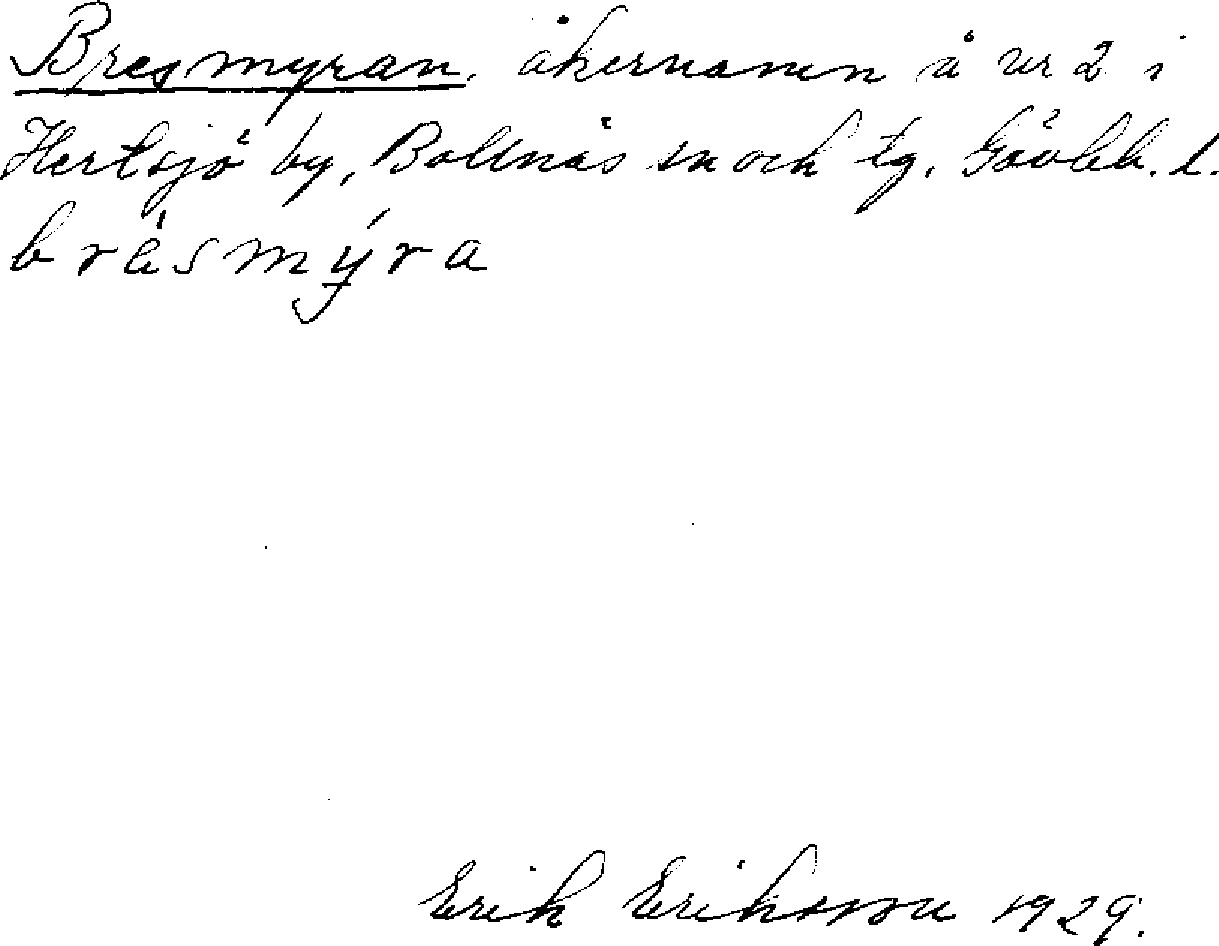 Bresmyran, åkernamn å nr 2 i
Hertsjö by, Bollnäs sn och tg. Gävleb. l.
brèsmýra
Erik Eriksson 1929.